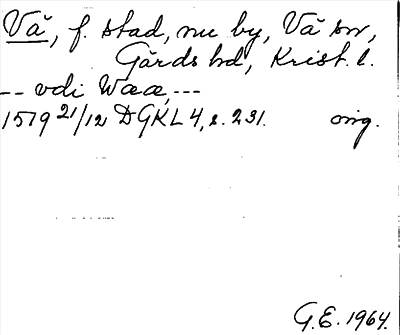 Vä, f. stad, nu by, Vä sn,
Gärds hd, Krist. l.
-- vdi Wææ, ---
1579 21/12 DGKL 4, s. 231. orig.
G.E. 1964.